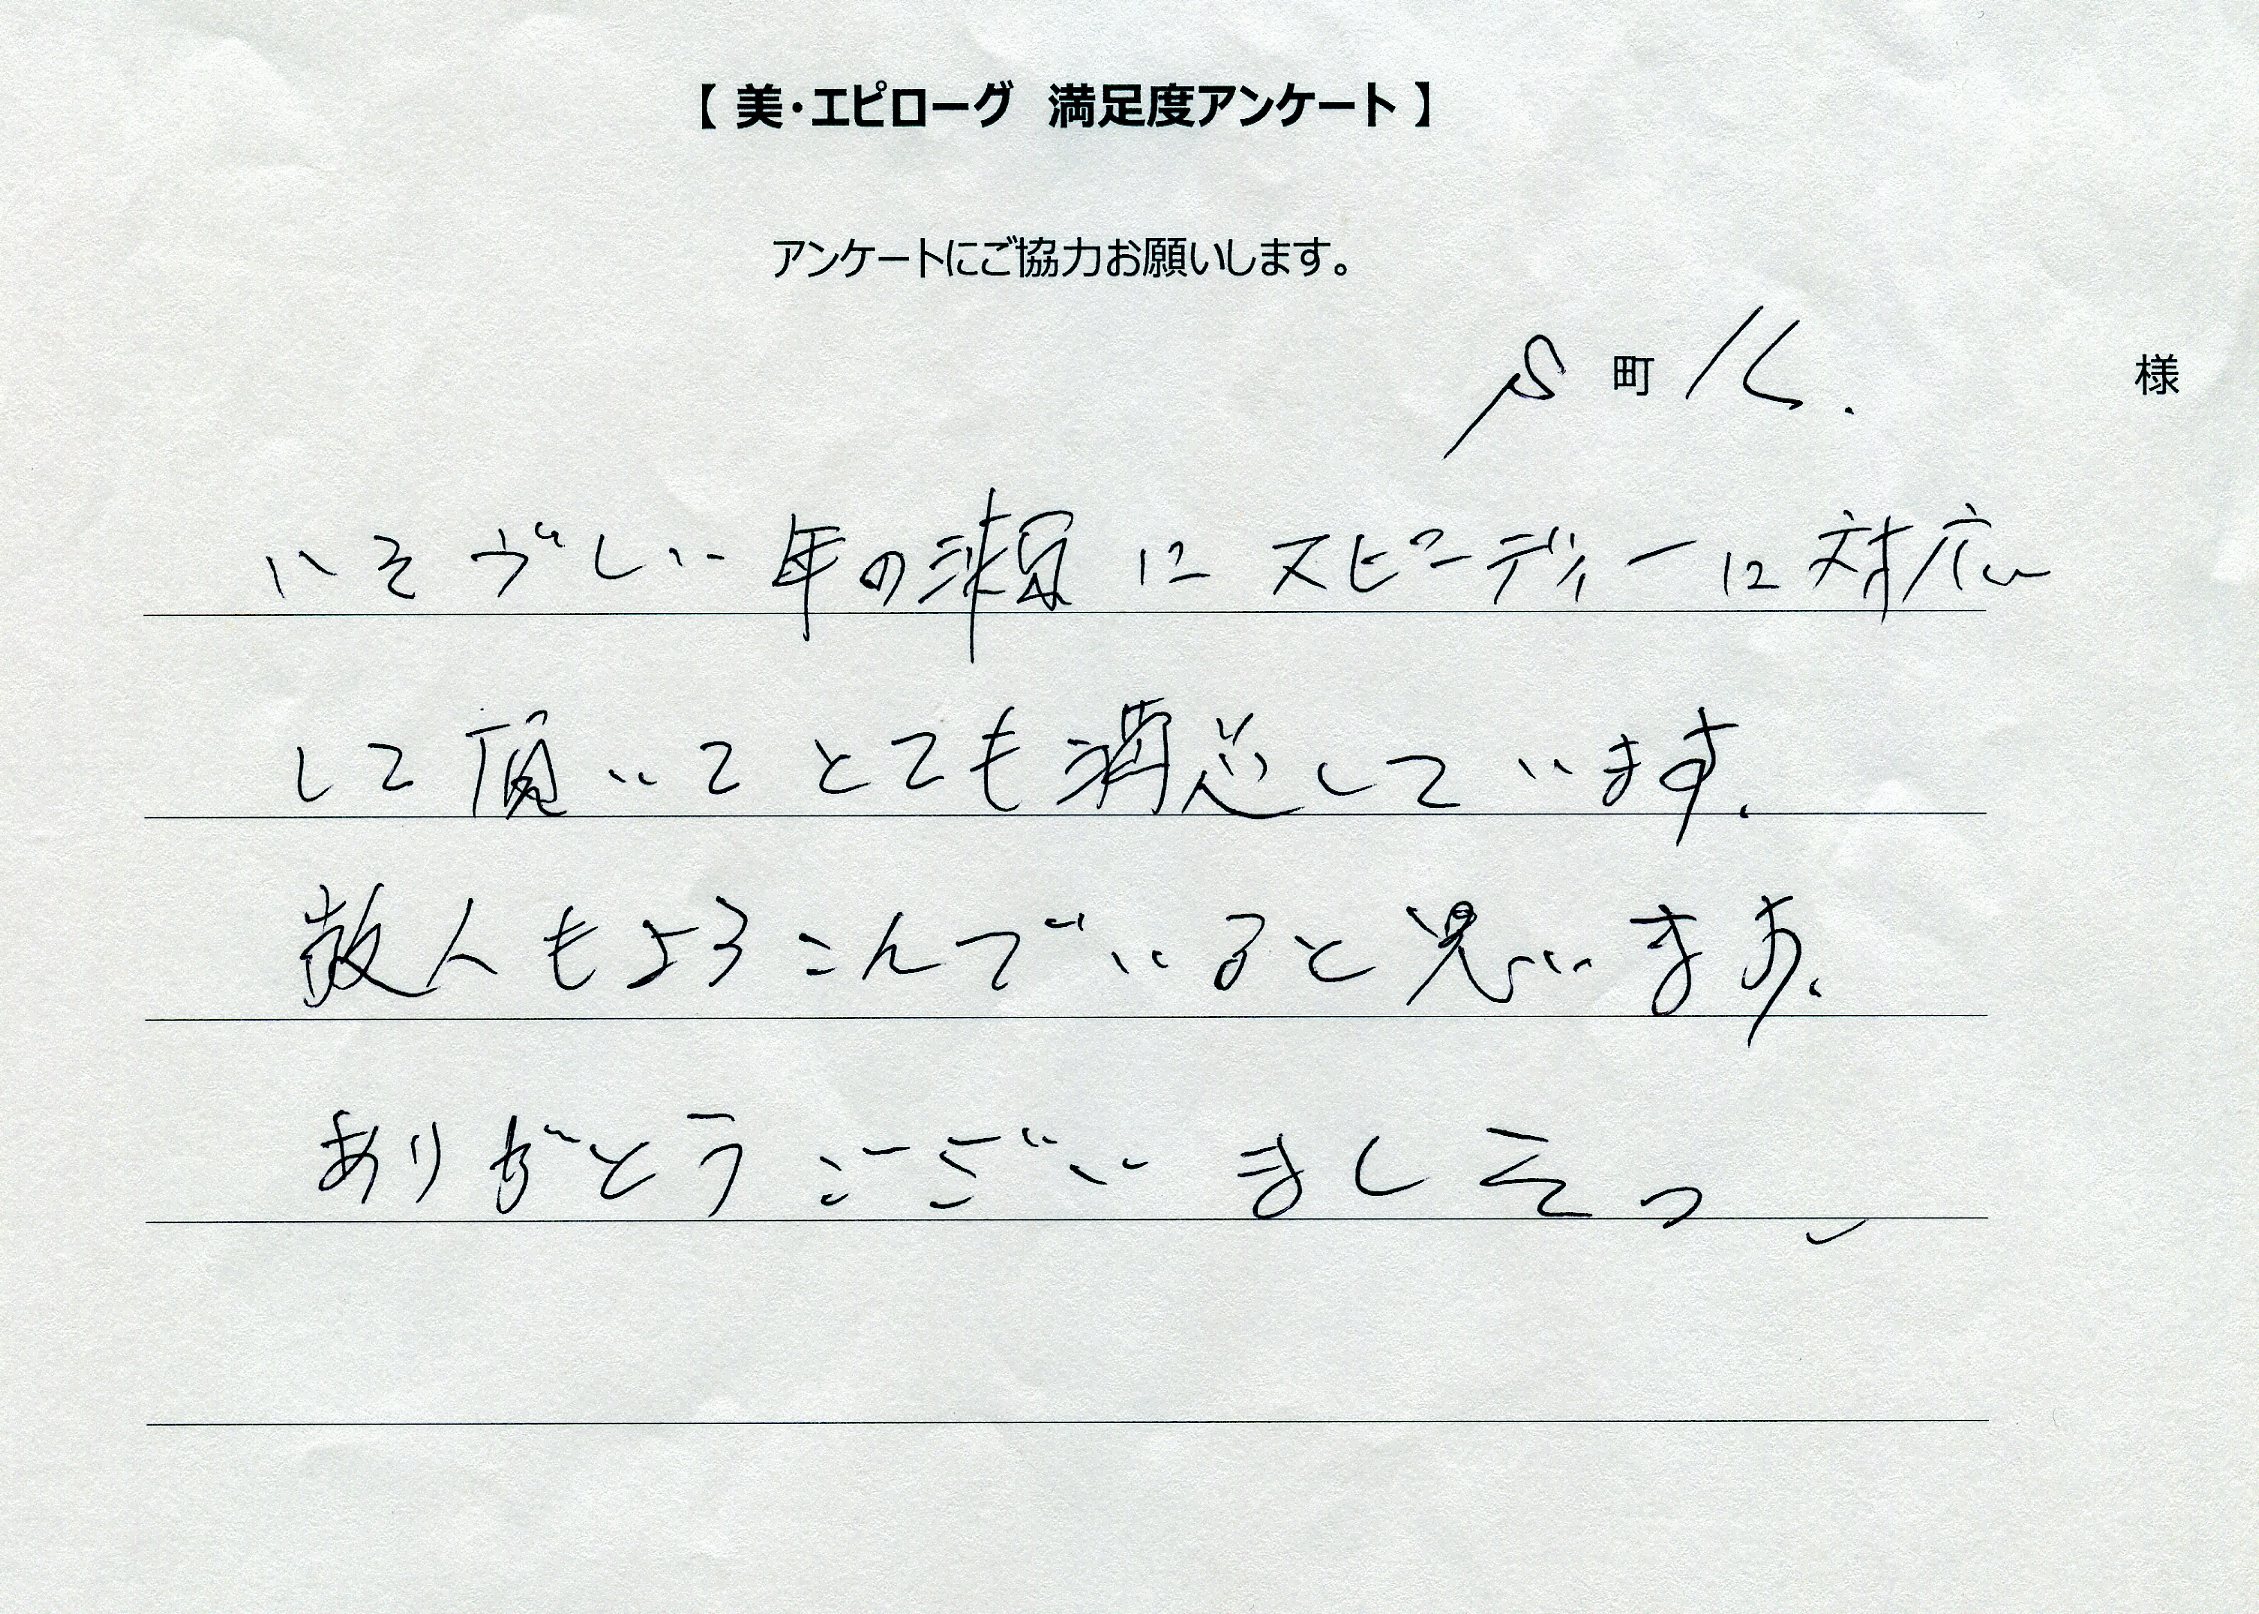 【 美・エピローグ 満足度アンケート 】
アンケートにご協力お願いします。
S 町 K. 様
いそがしい年の瀬にスピーディーに対応
して頂いてとても満足しています.
故人もよろこんでいると思います.
ありがとうございました